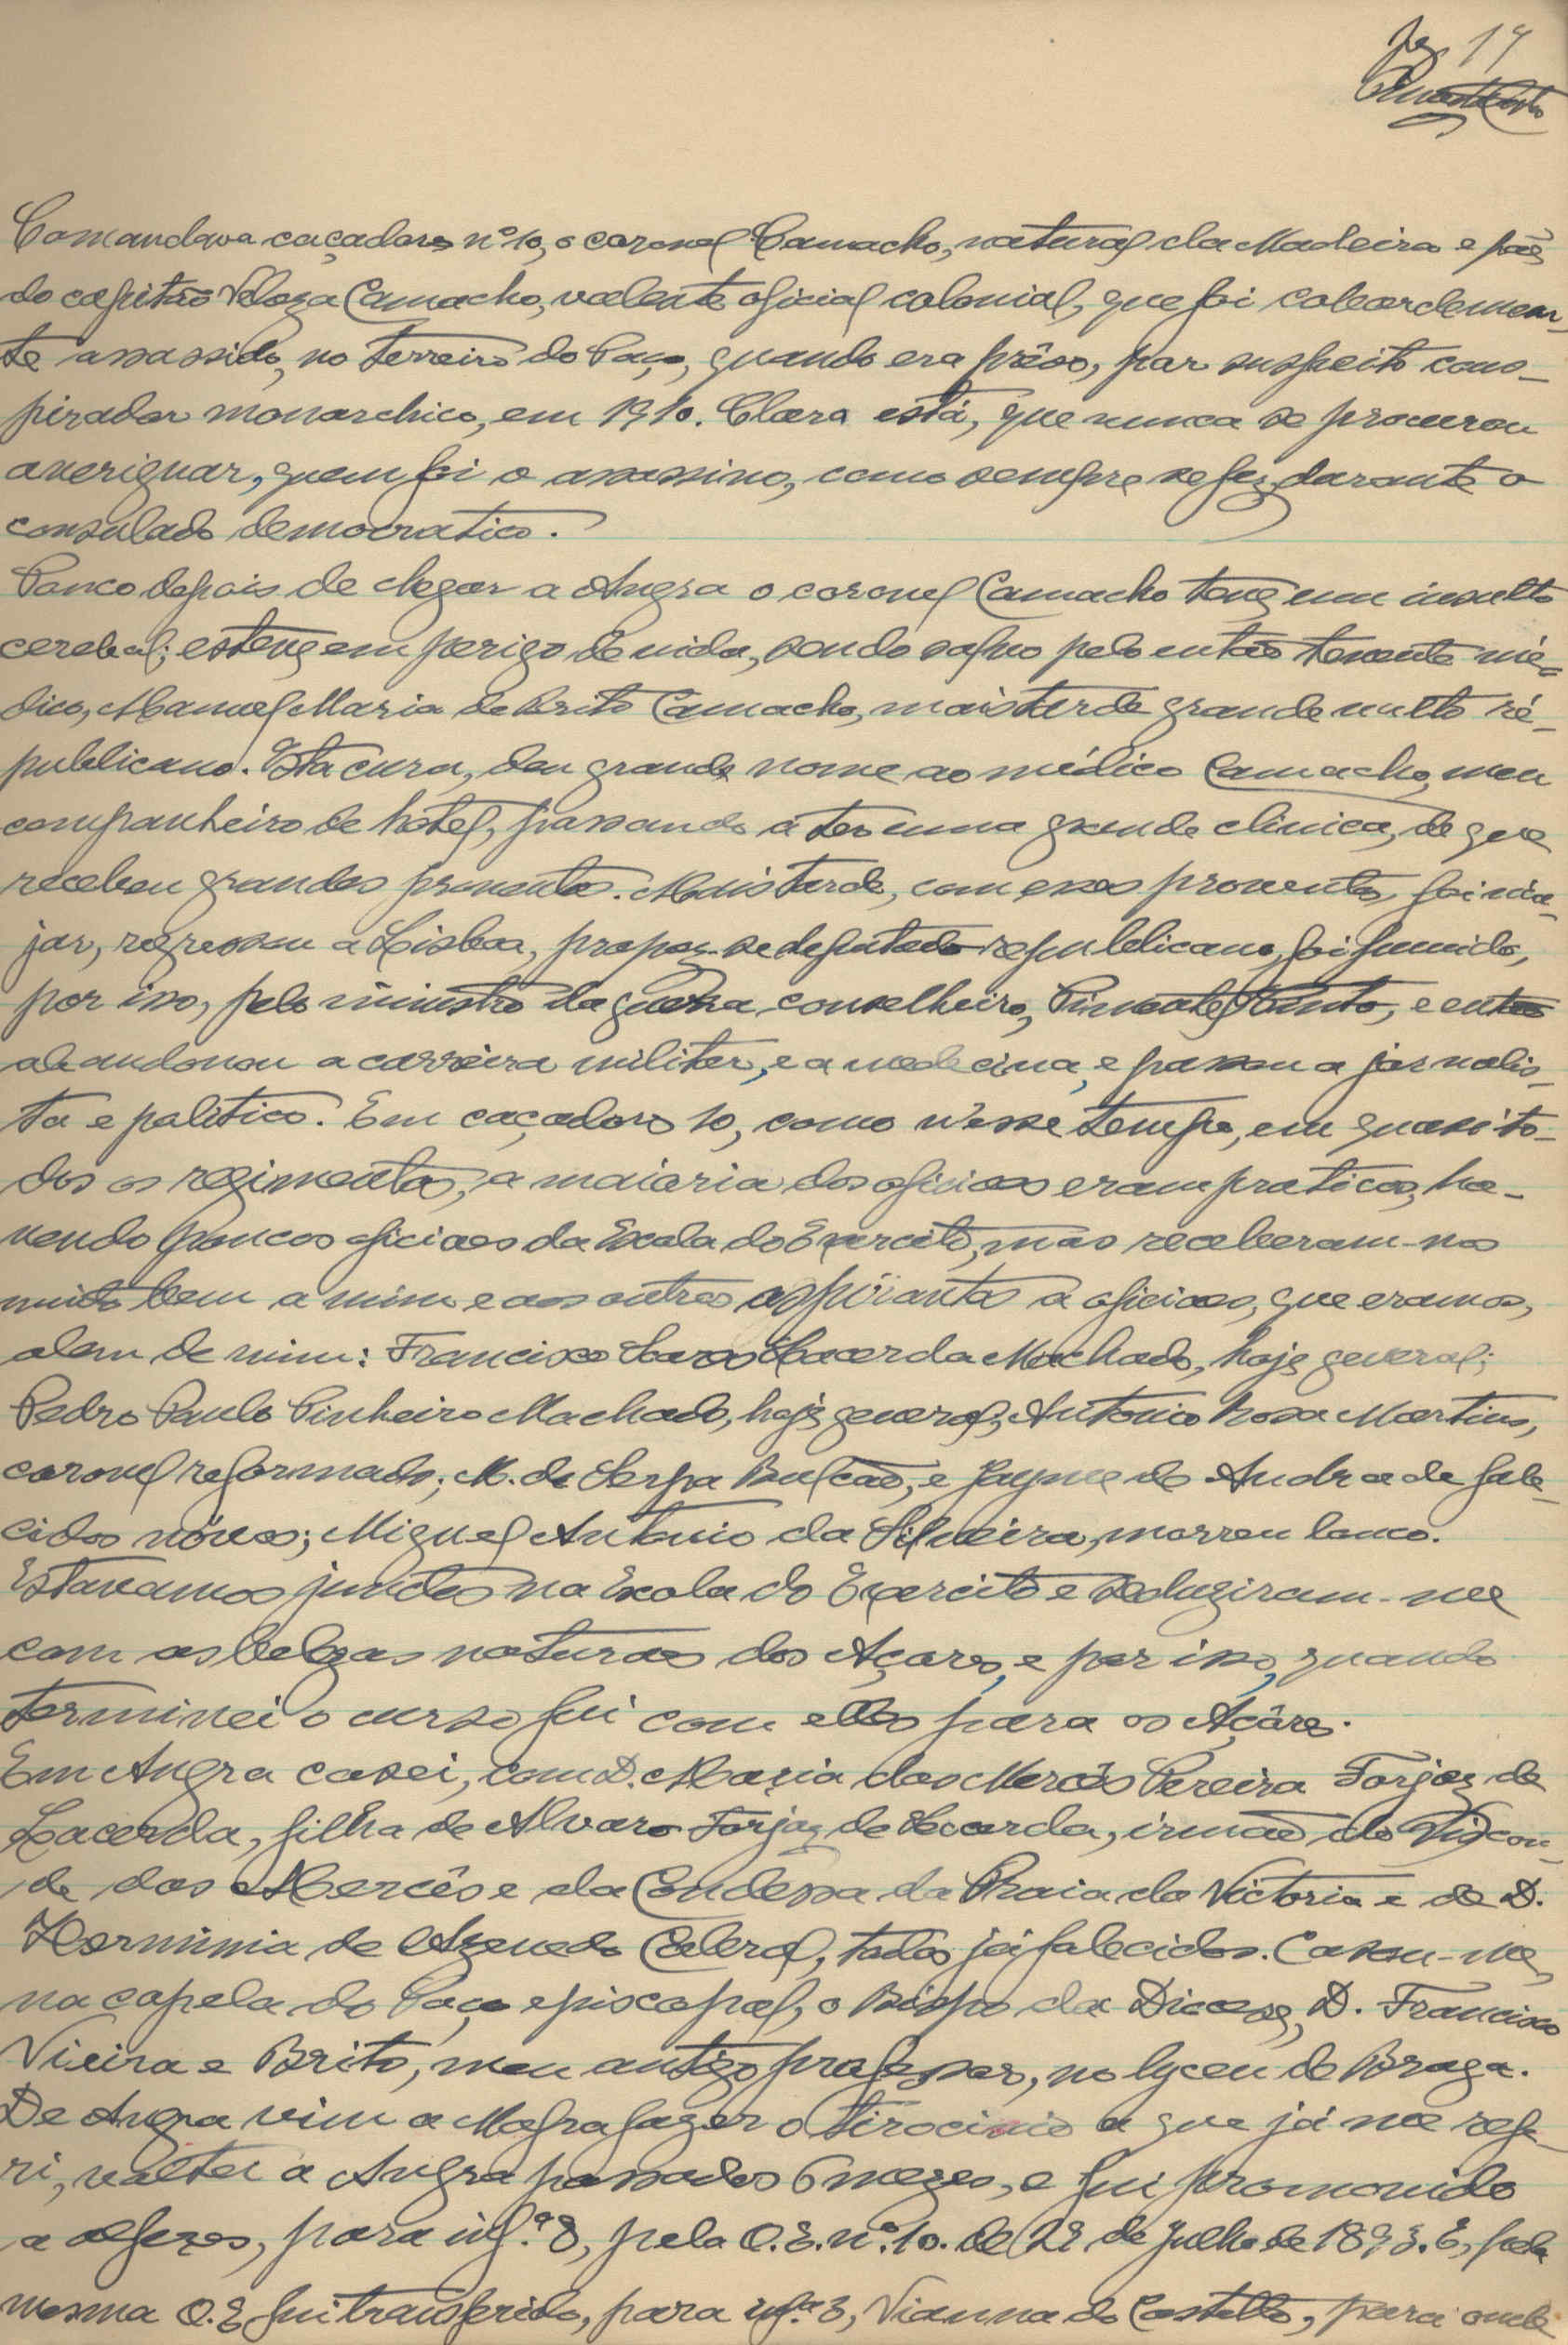 19
Comandava caçadores nº 10, o coronel Camacho, natural da Madeira e pae
do capitão Veloza Camacho, valente oficial colonial, que foi cobardemen-
te assassido, no Terreiro do Paço, quando era prêso, por suspeito cons-
pirador monarchico, em 1910. Claro está, que nunca se procurou
averiguar, quem foi o assassino, como sempre se fez, durante o
consulado democratico.
Pouco depois de chegar a Angra o coronel Camacho teve um insulto
cerebral; esteve em perigo de vida, sendo salvo pelo então tenente mé-
dico, Manoel Maria de Brito Camacho, mais tarde grande vulto ré-
publicano. Esta cura, deu grande nome ao médico Camacho, meu
companheiro de hotel, passando a ter uma grande clinica, de que
recebeu grandes proventos. Mais tarde, com esses proventos, foi via-
jar, regressou a Lisboa, propoz-se deputado republicano, foi punido,
por isso, pelo ministro da guerra, conselheiro, Pimentel Pinto, e então
abandonou a carreira militar, e a medecina, e passou a jornalis-
ta e politico. Em caçadores 10, como n'esse tempo, em quasi to-
dos os regimentos, a maioria dos oficiaes eram praticos, ha-
vendo poucos oficiaes da Escola do Exercito, mas receberam-nos
muito bem a mim e aos outros aspirantes a oficiaes, que eramos,
alem de mim: Francisco Lacerda Machado, hoje general;
Pedro Paulo Pinheiro Machado, hoje general; Antonio Rosa Martins,
coronel reformado; M. de Serpa Bulcão, e Jayme de Andrade fale-
cidos nóvos; Miguel Antonio da Silveira, morreu louco.
Estavamos juntos na Escola do Exercito e seduziram-me
com as belezas naturaes dos Açores, e por isso, quando
terminei o curso fui com elles para os Açôres.
Em Angra casei, com D. Maria das Mercês Pereira Forjaz de
Lacerda, filha de Alvaro Forjaz de Lacerda, irmão do Viscon-
de das Mercês e da Condessa da Praia da Victoria e de D.
Herminia de Azevedo Cabral, todos já falecidos. Casou-me,
na capela do Paço episcopal, o Bispo da Diocese, D. Francisco
Vieira e Brito, meu antigo professor, no lyceu de Braga.
De Angra vim a Mafra fazer o tirocinio a que já me refe-
ri, voltei a Angra passados 6 mezes, e fui promovido
a alferes, para inf.ª 8, pela O.E. nº. 10. de 22 de Julho de 1893. E, pela
mesma O.E fui transferido, para inf.ª 3, Vianna do Castello, para onde